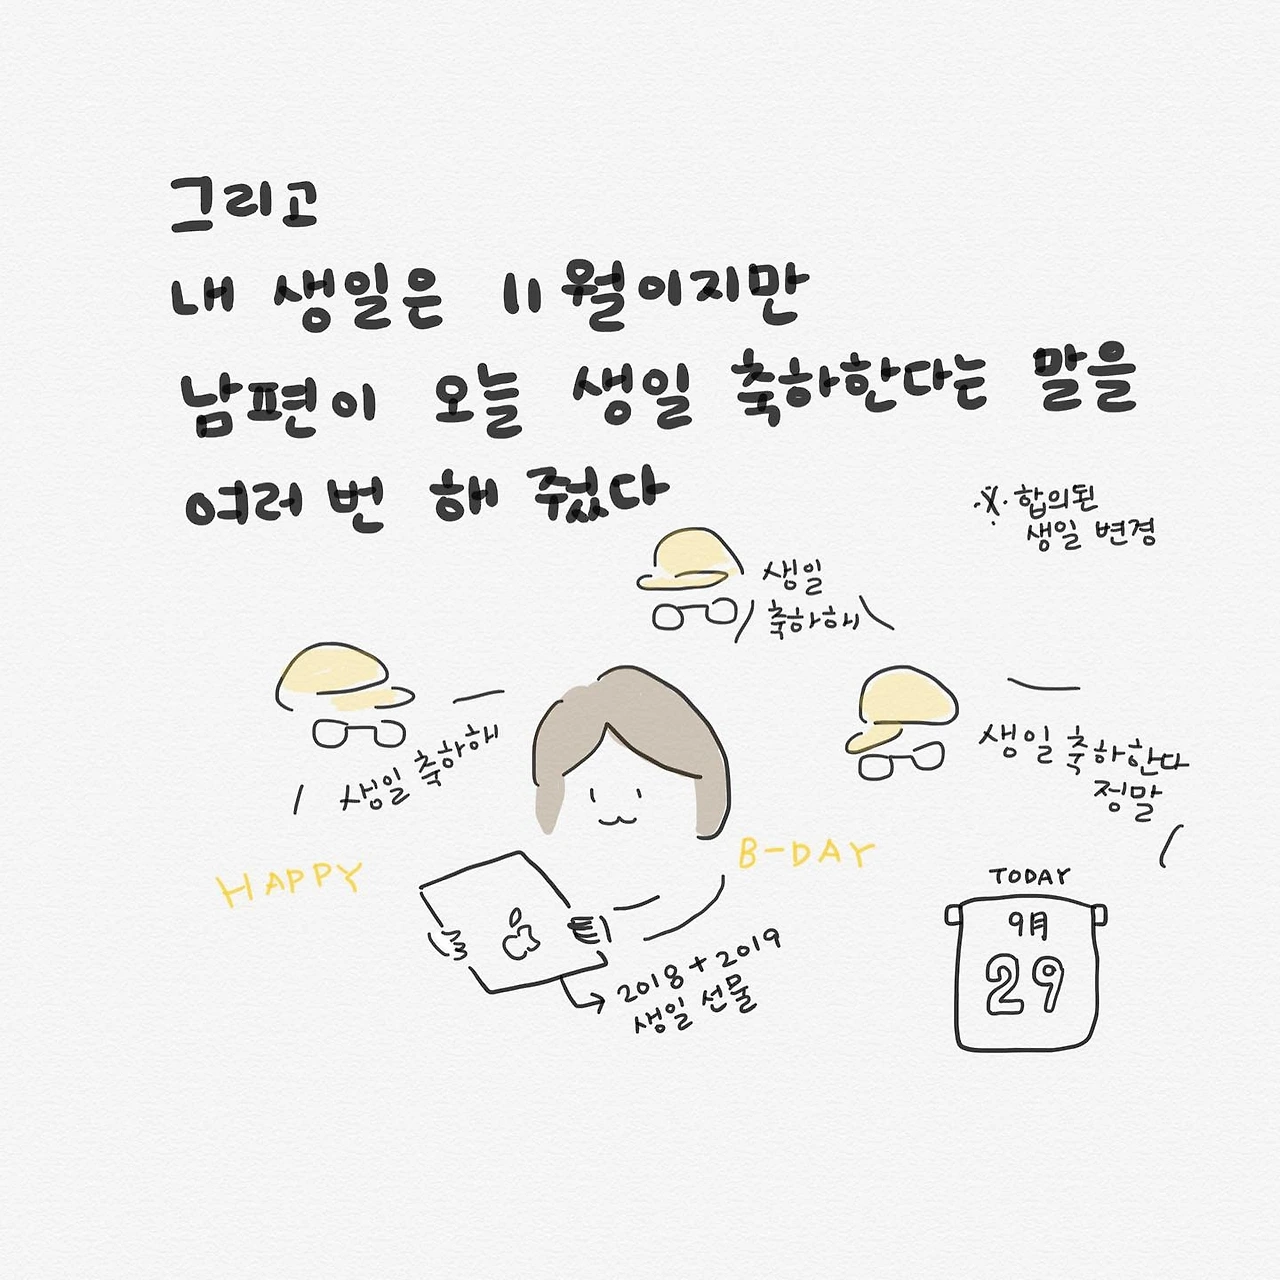 그리고
내 생일은 11월이지만
남편이 오늘 생일 축하한다는 말을
여러 번 해 줬다
※ 합의된
생일 변경
생일
축하해
생일 축하해
생일 축하한다
정말
HAPPY
B-DAY
2018+2019
생일 선물
TODAY
9月
29